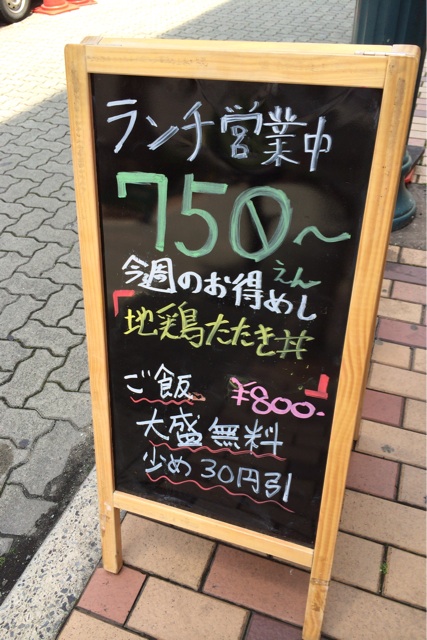 ランチ営業中
750〜
えん
今週のお得めし
「地鶏たたき丼」
¥800-
ご飯
大盛無料
少め30円引